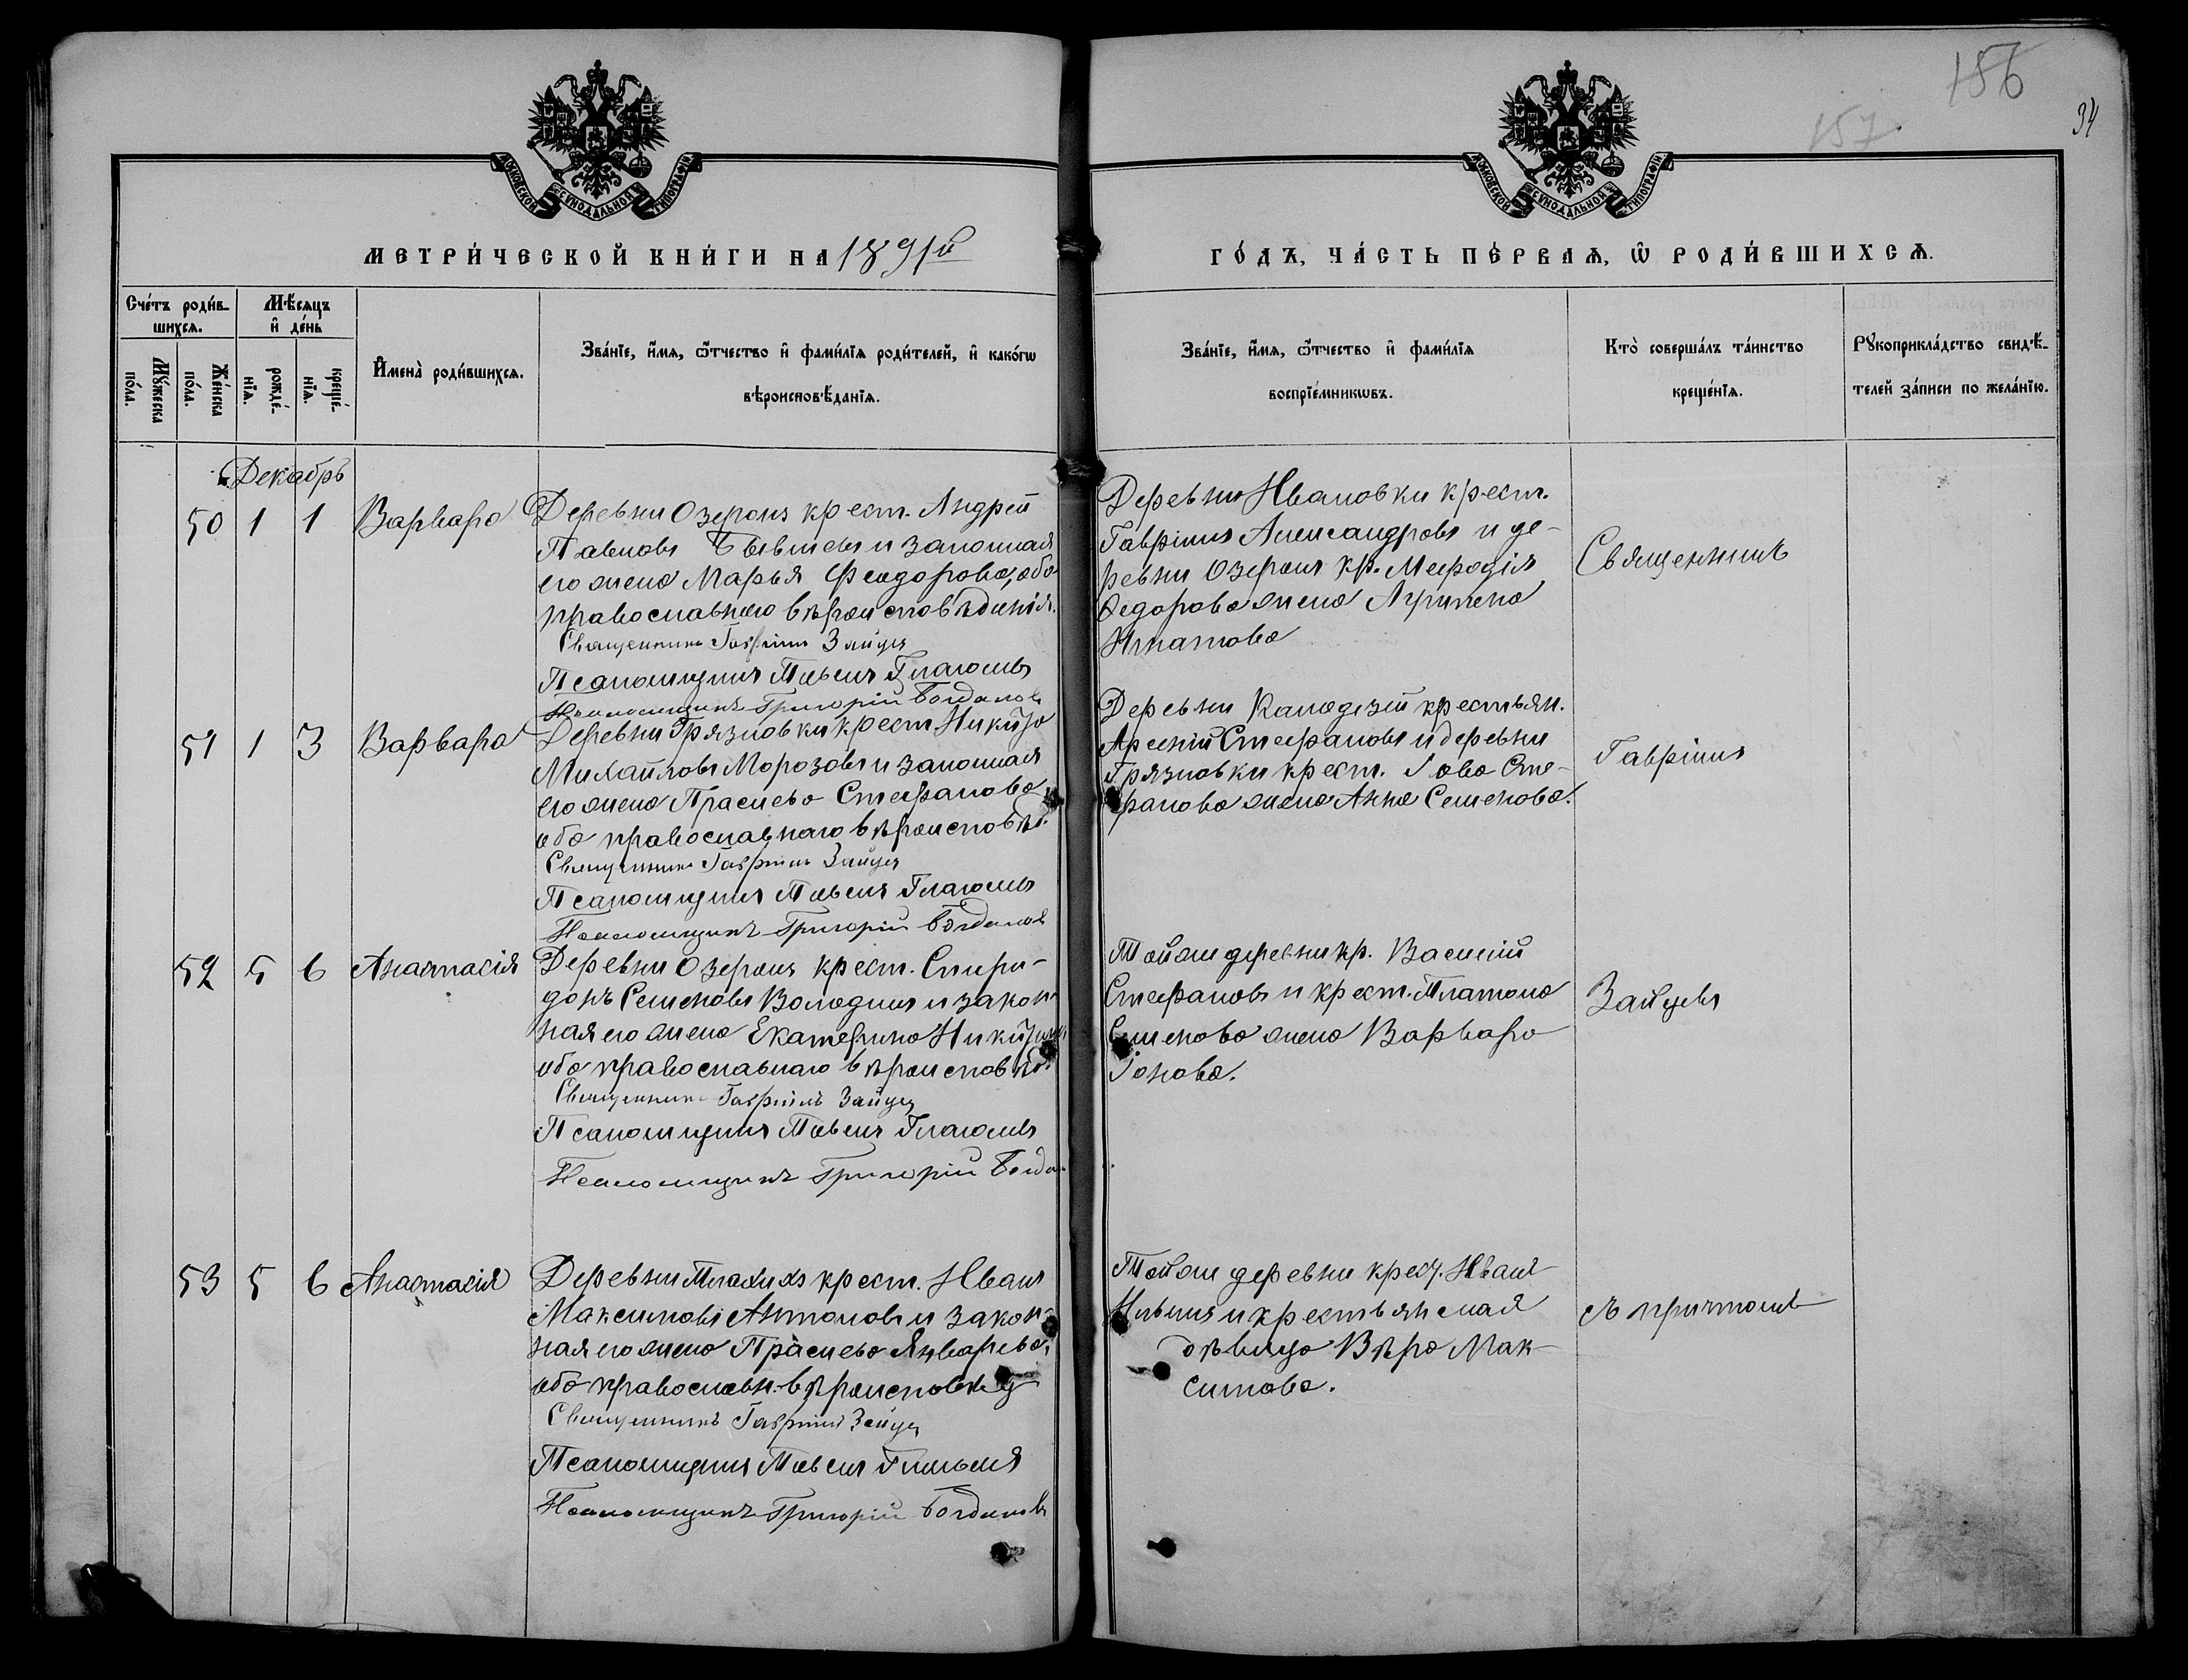 156
157
94
МОСКОВСКОЙ СѴНОДАЛЬНОЙ ТИПОГРАФІИ
МОСКОВСКОЙ СѴНОДАЛЬНОЙ ТИПОГРАФІИ
МЕТРИ́ЧЕСКОЙ КНИ́ГИ НА 1891й
ГО́ДЪ, ЧА́СТЬ ПЕ́РВАѦ, Ѡ РОДИ́ВШИХСѦ.
Сче́тъ роди́в-
шихсѧ.
Мꙋ́жеска
по́ла.
Же́нска
по́ла.
Мѣ́сяцъ
и҆ де́нь
рожде́-
нїѧ.
креще́-
нїѧ.
И҆мена̀ роди́вшихсѧ.
Зва́нїе, и҆́мѧ, ѻ҆́тчество и҆ фами́лїѧ роди́телей, и҆ како́гѡ
вѣроисповѣ́данїѧ.
Зва́нїе, и҆́мѧ, ѻ҆́тчество и҆ фами́лїѧ
воспрїе́мникѡвъ.
Кто̀ соверша́лъ та́инство
креще́нїѧ.
Рꙋкоприкла́дство свидѣ́-
телей за́писи по жела́нїю.
Декабрь
50 1 1 Варвара
Деревни Озерокъ крест. Андрей
Павловъ и законная
его жена Марья Феодорова, оба
православнаго вѣроисповѣданія.
Священникъ Гавріилъ Зайцев
Псаломщикъ Павелъ Глаголевъ
Псаломщикъ Григорій Богдановъ
Деревни Ивановки крест.
Гавріилъ Александровъ и де-
ревни Озерокъ кр. Мефодія
Федорова жена Агрипена
Игнатова
Священникъ
51 1 3 Варвара
Деревни Грязновки крест Никита
Михайловъ Морозовъ и законная
его жена Прасковья Стефанова
оба православнаго вѣроисповѣд.
Священникъ Гавріилъ Зайцев
Псаломщикъ Павелъ Глаголевъ
Псаломщикъ Григорій Богдановъ
Деревни Колодезей крестьян.
Арсеній Стефановъ и деревни
Грязновки крест. Іова Сте-
фанова жена Анна Семенова.
Гавріилъ
52 5 6 Анастасія
Деревни Озерокъ крест. Спири-
донъ Семеновъ Володинъ и закон-
ная его жена Екатерина Никитина
оба православнаго вѣроисповѣд.
Священникъ Гавріилъ Зайцев
Псаломщикъ Павелъ Глаголевъ
Псаломщикъ Григорій Богда
Той же деревни кр. Василій
Стефановъ и крест. Платона
Семенова жена Варвара
Іонова.
Зайцевъ
53 5 6 Анастасія
Деревни Плахихъ крест. Иванъ
Максимовъ Антоновъ и закон-
ная его жена Прасковья Январева,
оба православн. вѣроисповѣд
Священникъ Гавріилъ Зайцев
Псаломщикъ Павелъ Глаголевъ
Псаломщикъ Григорій Богдановъ
Той же деревни крест. Иванъ
Ильинъ и крестьянская
дѣвица Вѣра Мак-
симова.
съ причтомъ